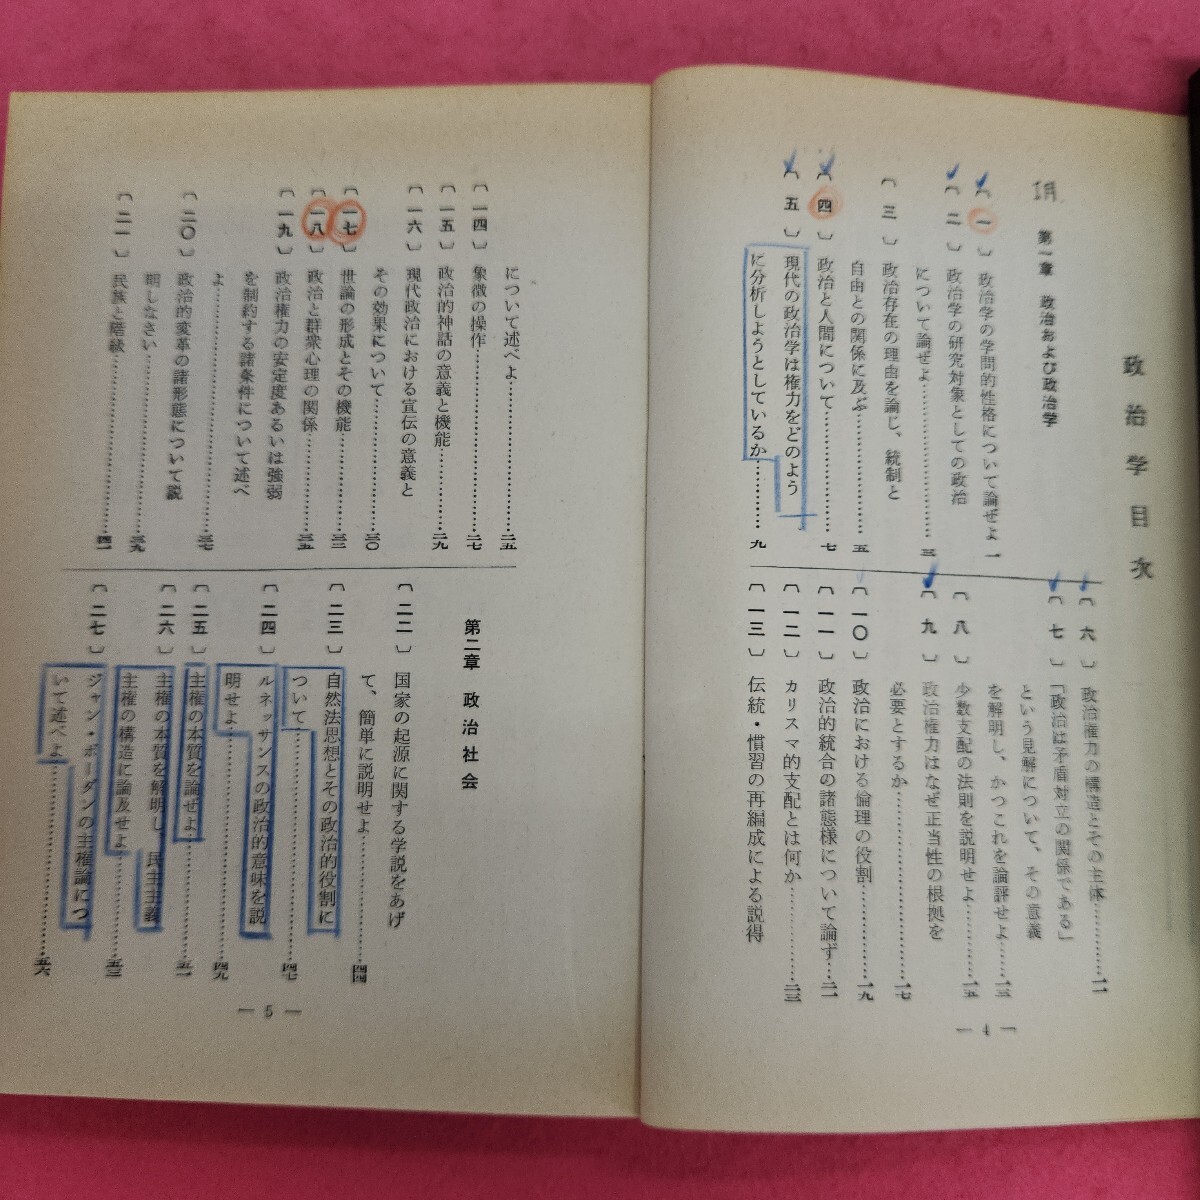 政治学目次
第一章 政治および政治学
〔一〕 政治学の学問的性格について論ぜよ 一
〔二〕 政治学の研究対象としての政治
について論ぜよ…………三
〔三〕 政治存在の理由を論じ、統制と
自由との関係に及ぶ…………五
〔四〕 政治と人間について…………七
〔五〕 現代の政治学は権力をどのよう
に分析しようとしているか…………九
〔六〕 政治権力の構造とその主体…………一一
〔七〕 「政治は矛盾対立の関係である」
という見解について、その意義
を解明し、かつこれを論評せよ……一三
〔八〕 少数支配の法則を説明せよ…………一五
〔九〕 政治権力はなぜ正当性の根拠を
必要とするか…………一七
〔一〇〕 政治における倫理の役割…………一九
〔一一〕 政治的統合の諸態様について論ず…二一
〔一二〕 カリスマ的支配とは何か…………二三
〔一三〕 伝統・慣習の再編成による説得
― 4 ―
について述べよ…………二五
〔一四〕 象徴の操作…………二七
〔一五〕 政治的神話の意義と機能…………二九
〔一六〕 現代政治における宣伝の意義と
その効果について…………三〇
〔一七〕 世論の形成とその機能…………三三
〔一八〕 政治と群衆心理の関係…………三五
〔一九〕 政治権力の安定度あるいは強弱
を制約する諸条件について述べ
よ…………三七
〔二〇〕 政治的変革の諸形態について説
明しなさい…………三九
〔二一〕 民族と階級…………四一
第二章 政治社会
〔二二〕 国家の起源に関する学説をあげ
て、簡単に説明せよ…………四四
〔二三〕 自然法思想とその政治的役割に
ついて…………四七
〔二四〕 ルネッサンスの政治的意味を説
明せよ…………四九
〔二五〕 主権の本質を論ぜよ…………五一
〔二六〕 主権の本質を解明し、民主主義
主権の構造に論及せよ…………五三
〔二七〕 ジャン・ボーダンの主権論につ
いて述べよ…………五六
― 5 ―